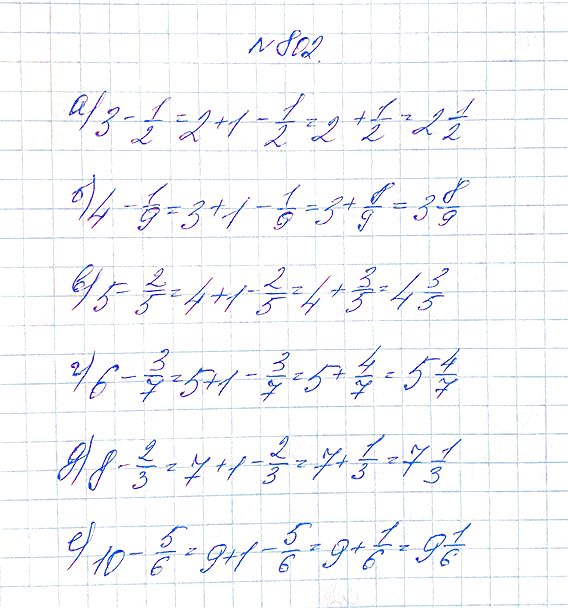 №802.
а) 3 - 1/2 = 2 + 1 - 1/2 = 2 + 1/2 = 2 1/2
б) 4 - 1/9 = 3 + 1 - 1/9 = 3 + 8/9 = 3 8/9
в) 5 - 2/5 = 4 + 1 - 2/5 = 4 + 3/5 = 4 3/5
г) 6 - 3/7 = 5 + 1 - 3/7 = 5 + 4/7 = 5 4/7
д) 8 - 2/3 = 7 + 1 - 2/3 = 7 + 1/3 = 7 1/3
е) 10 - 5/6 = 9 + 1 - 5/6 = 9 + 1/6 = 9 1/6